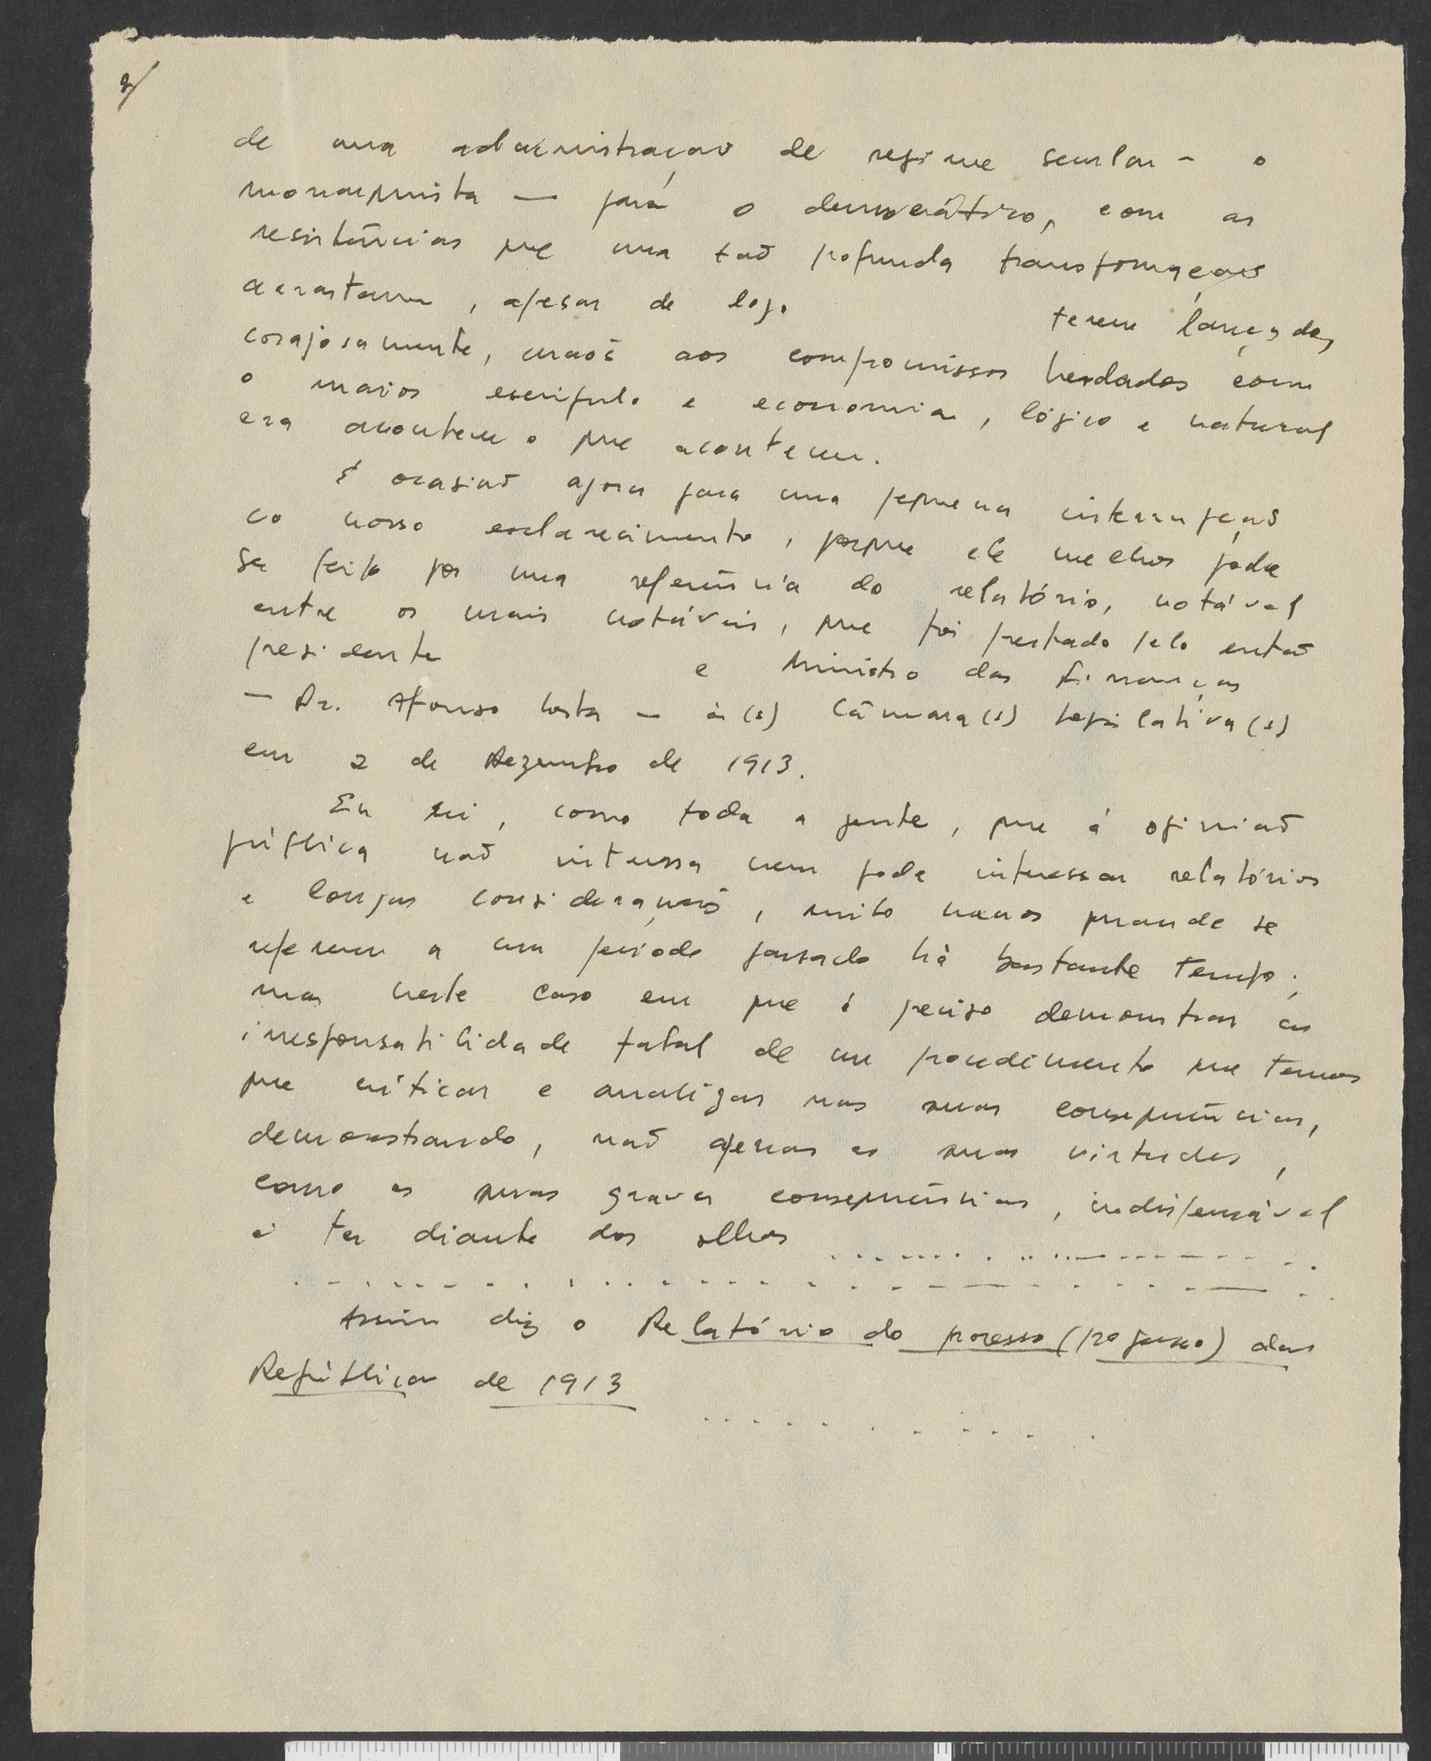 2/
de uma administração de regime secular - o
monarquista — para o democrático, com as
resistências que uma tão profunda transformação
arrastam, apesar de logo terem lançado,
corajosamente, mãos aos compromissos herdados com
o maior escrúpulo e economia, lógico e natural
era acontecer o que aconteceu.
É ocasião agora para uma pequena interrupção
no nosso esclarecimento, porque ele melhor pode
ser feito por uma referência do relatório, notável
entre os mais notáveis, que foi prestado pelo então
presidente e Ministro das Finanças
— Dr. Afonso Costa — à(s) Câmara(s) Legislativa(s)
em 2 de Dezembro de 1913.
Eu sei, como toda a gente, que á opinião
pública não interessa nem pode interessar relatórios
e longas considerações, muito menos quando se
referem a um período passado há bastante tempo;
mas neste caso em que é preciso demonstrar a
irresponsabilidade total de um procedimento que temos
que criticar e analizar nas suas consequências,
demonstrando, não apenas as suas virtudes,
como as suas graves consequências, indispensável
é ter diante dos olhos ..............
..............................
Assim diz o Relatório do processo (progresso) da
República de 1913
..........